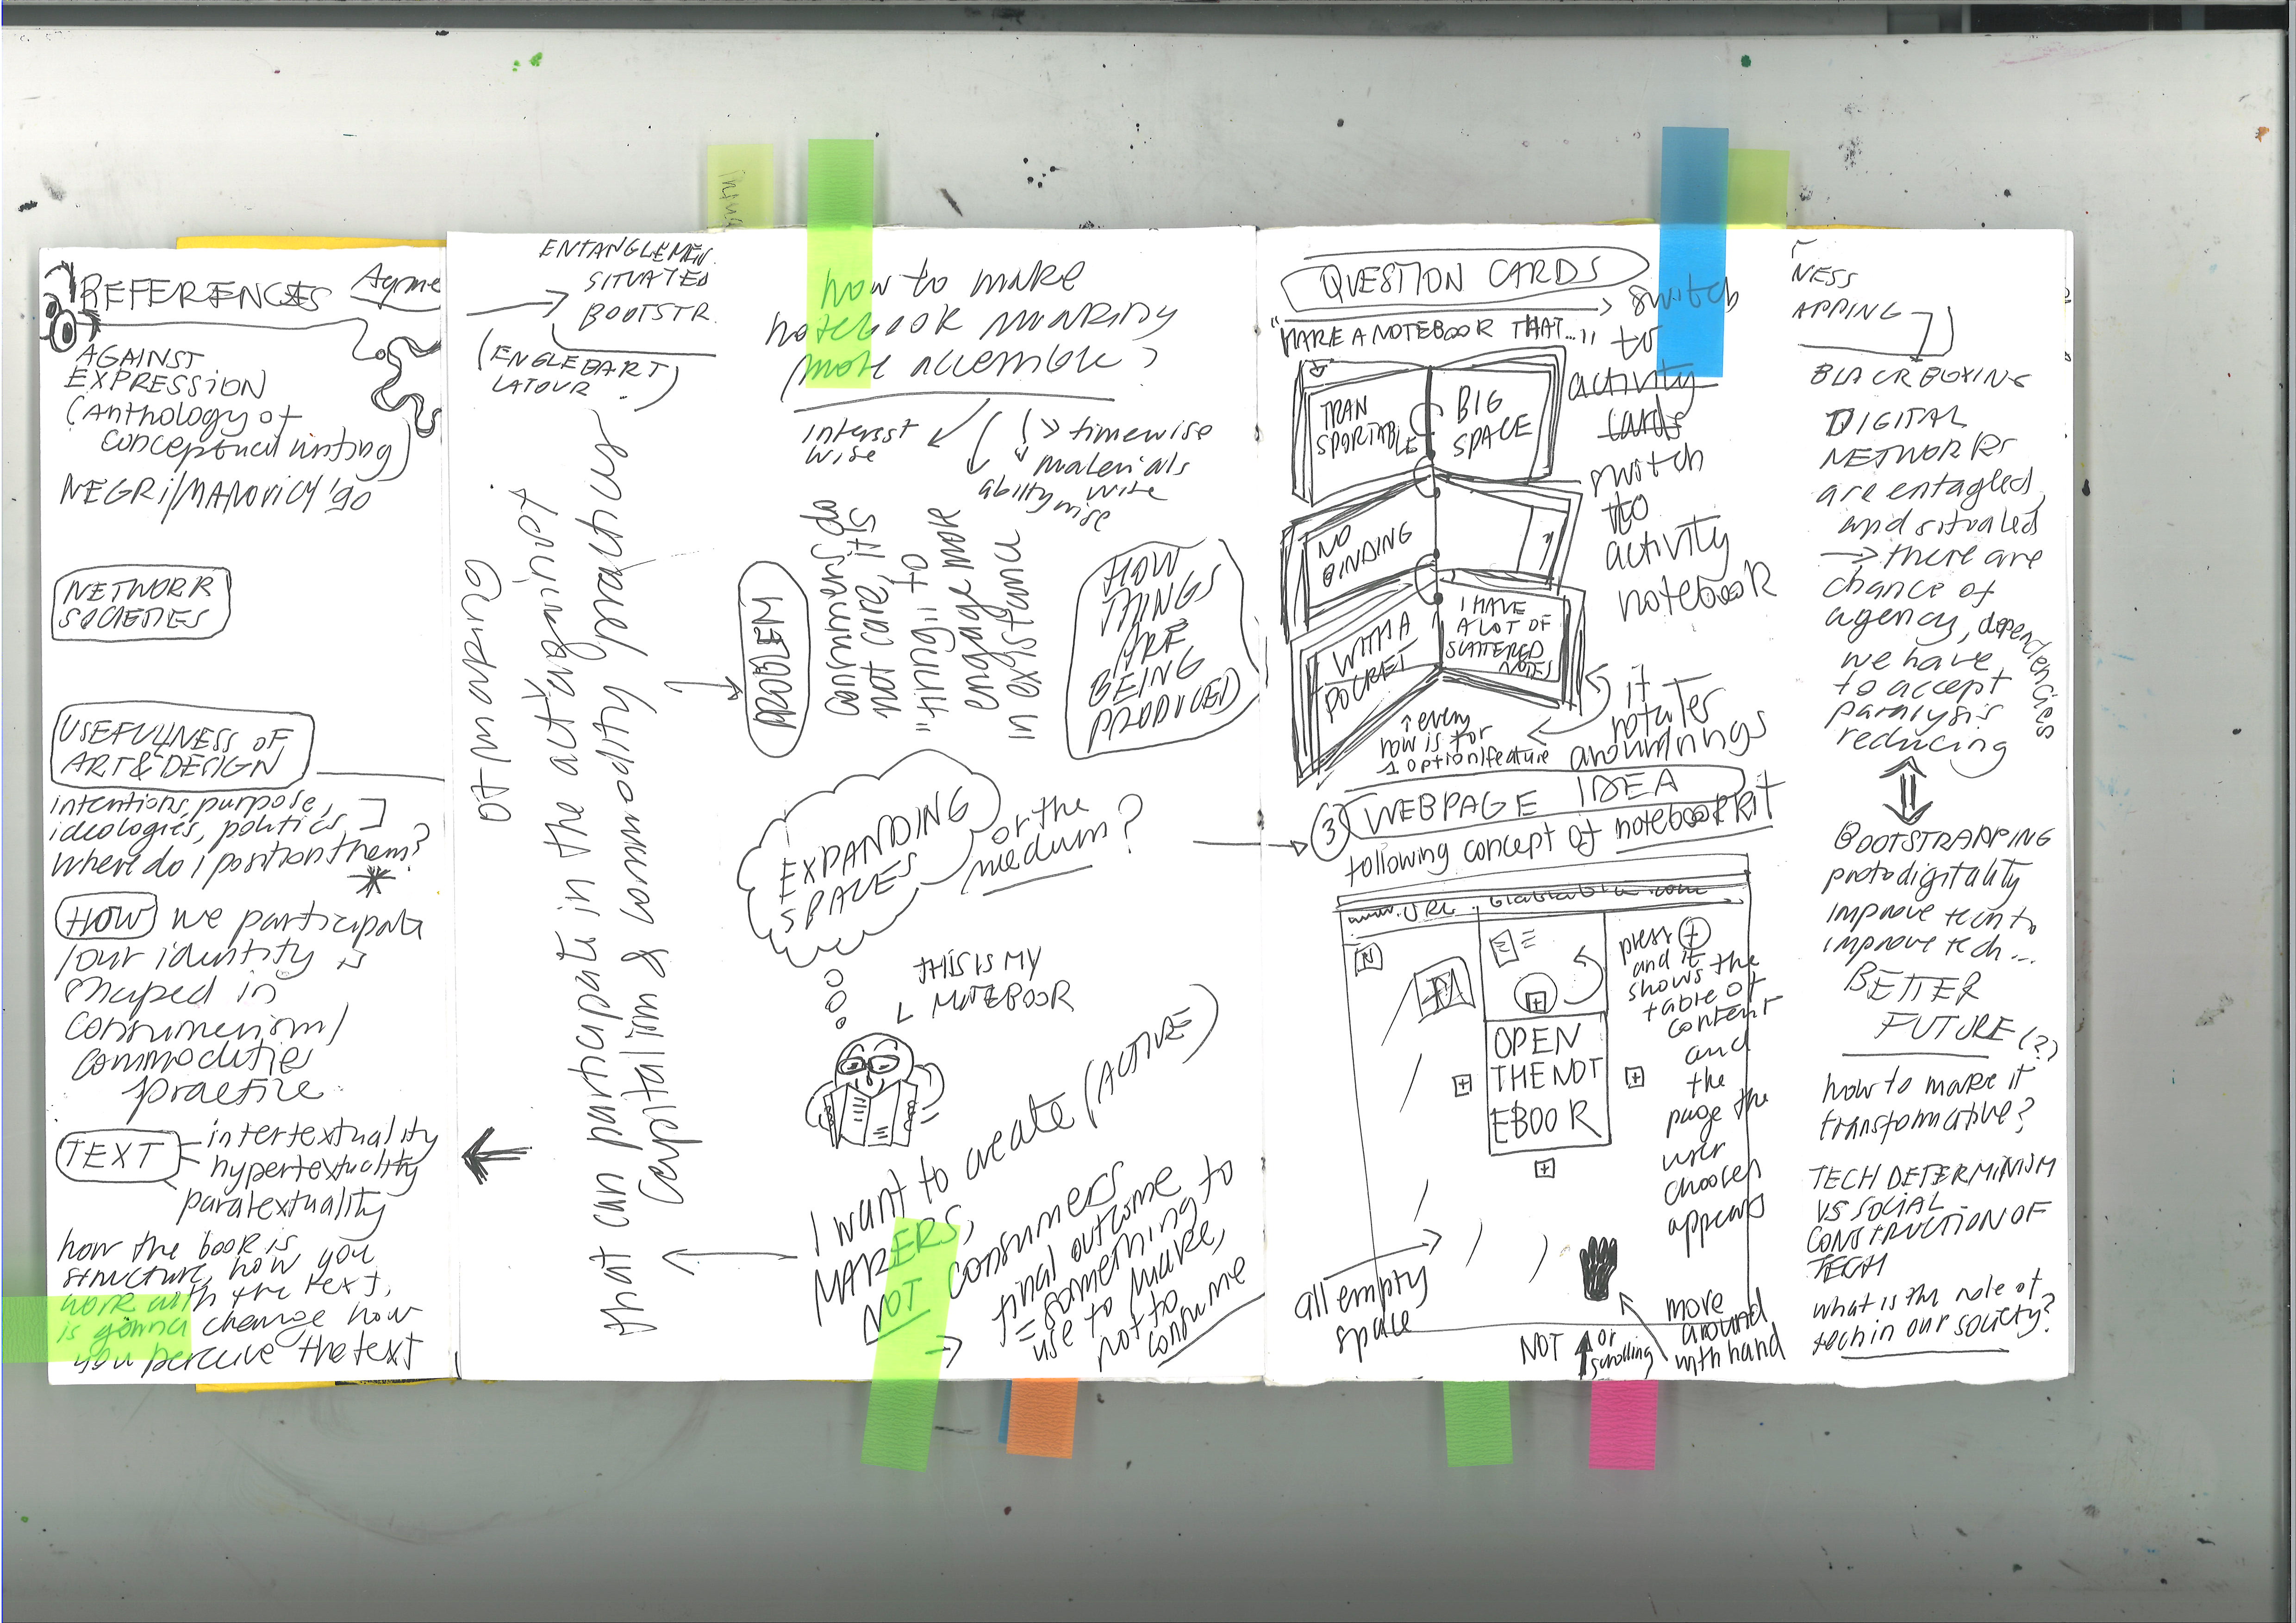 REFERENCES
AGAINST
EXPRESSION
(Anthology of
conceptual writing)
NEGRI/MANOVICH '90
NETWORK
SOCIETIES
USEFULNESS OF
ART & DESIGN
intentions, purpose,
ideologies, politics
where do i position them?
*
HOW we participate
/our identity is
shaped in
consumerism/
commodities
practice
TEXT
intertextuality
hypertextuality
paratextuality
how the book is
structure, how you
work with the text,
is gonna change how
you perceive the text
ENTANGLEMEN
SITUATED
BOOTSTR.
(ENGLEBART
LATOUR )
that can participate in the act against
capitalism & commodity practices
of making
how to make
notebook making
more accessible?
interest
wise
timewise
materials
wise
abilitywise
PROBLEM
consumers do
not care, it's
"tiring" to
engage more
in existance
HOW
THINGS
ARE
BEING
PRODUCED
EXPANDING
SPACES
or the
medium?
THIS IS MY
NOTEBOOK
I want to create (ACTIVE)
MAKERS,
NOT consumers
final outcome
= something to
use to make,
not to
consume
QUESTION CARDS
"MAKE A NOTEBOOK THAT..."
switch
to
activity
cards
switch
to
activity
notebook
TRAN
SPORTABLE
BIG
SPACE
NO
BINDING
WITH A
POCKET
I HAVE
A LOT OF
SCATTERED
NOTES
it
rotates
around rings
every
row is for
1 option/feature
3 WEBPAGE IDEA
following concept of notebook kit
www.URL.blablabla.com
OPEN
THE NOT
EBOOK
press +
and it
shows the
table of
content
and
the
page the
user
chooses
appears
all empty
space
NOT or
scrolling
move
around
with hand
NESS
APPING
BLACKBOXING
DIGITAL
NETWORKS
are entagled,
and situated
→ there are
chance of
agency, dependencies
we have
to accept
paralysis
reducing
BOOTSTRAPPING
protodigitality
improve tech to
improve tech...
BETTER
FUTURE (?)
how to make it
transformative?
TECH DETERMINISM
VS SOCIAL
CONSTRUCTION OF
TECH
what is the role of
tech in our society?